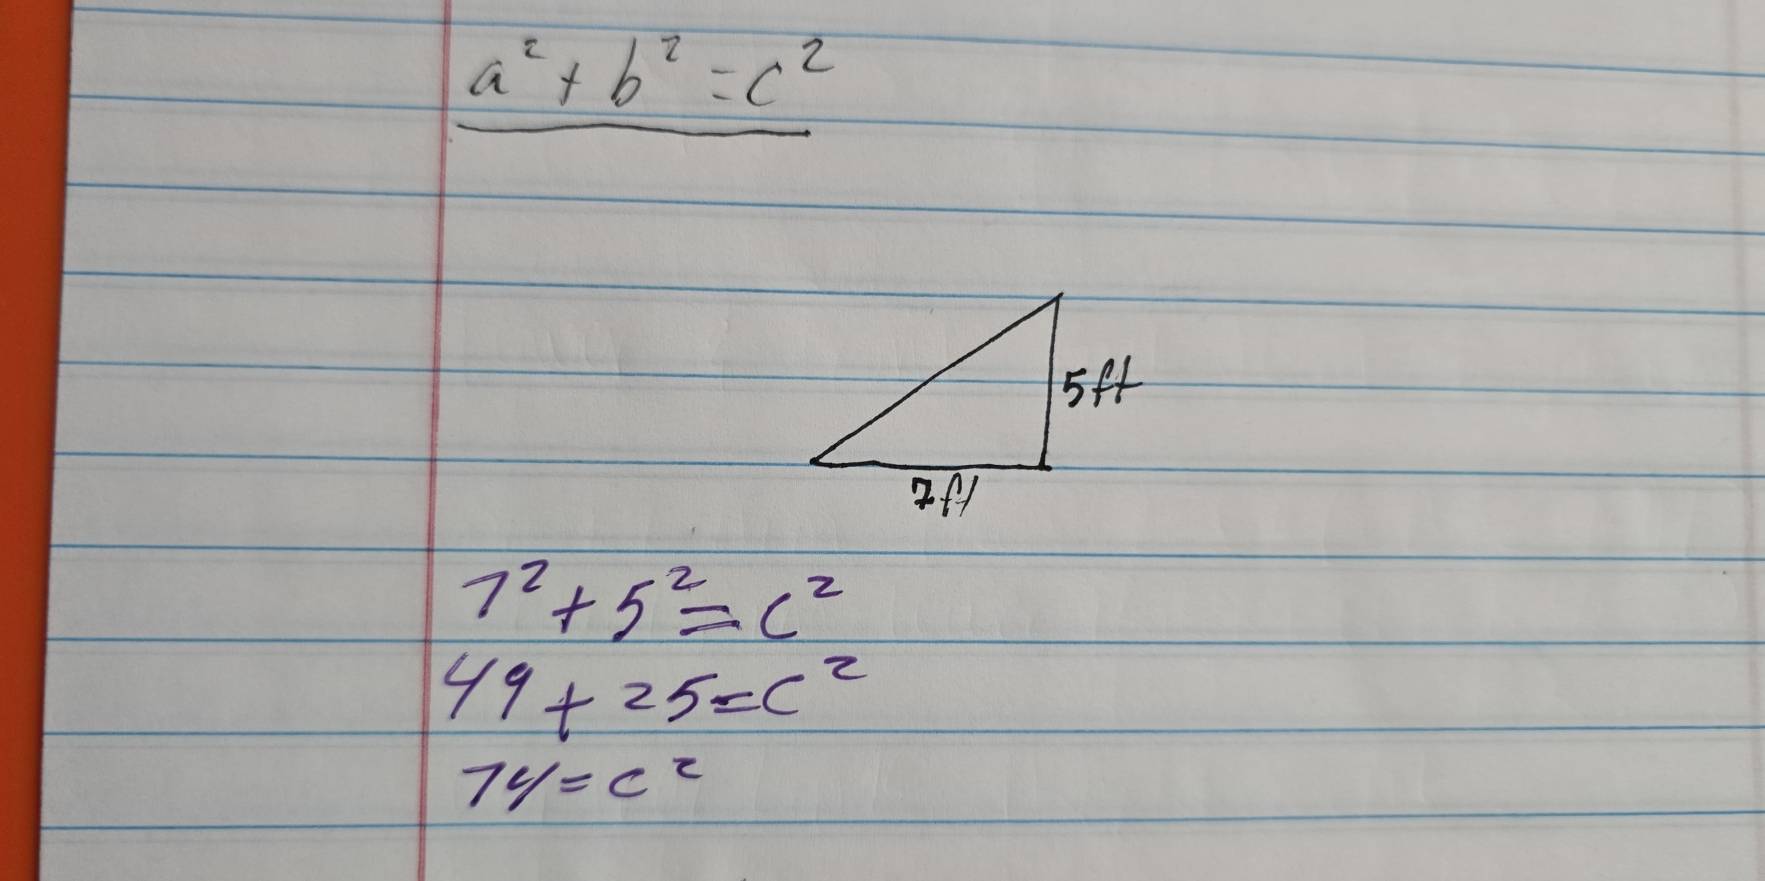 a² + b² = c²
5ft
7ft
7² + 5² = c²
49 + 25 = c²
74 = c²